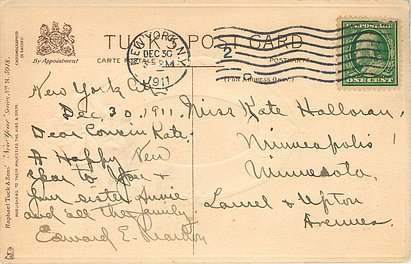 TUCK'S POST CARD
By Appointment
CARTE POSTALE
NEW YORK, N.Y.
DEC 30
1911
2
ONE CENT
New York City
Dec, 30, 1911.
Dear Cousin Kate:
A Happy New
Year to you &
your sister Annie
and all the family
Edward E.
Miss Kate Halloran,
Minneapolis
Minnesota,
Laurel & Upton
Avenues.
Raphael Tuck & Sons' "New Year" Series
PUBLISHERS TO THEIR MAJESTIES THE KING & QUEEN